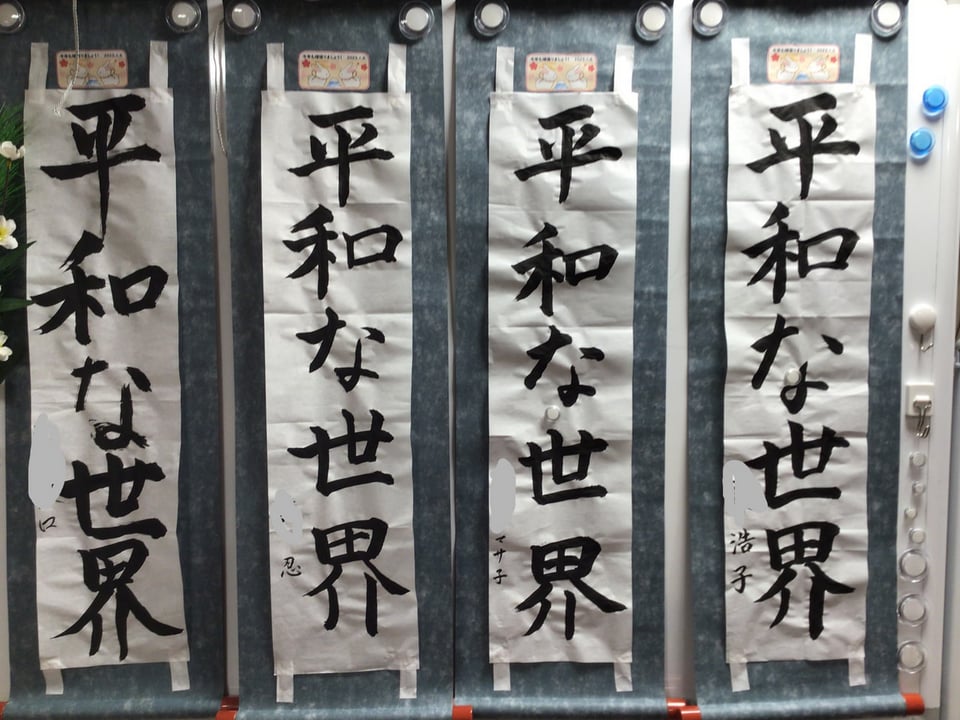 平和な世界
忍
平和な世界
マサ子
平和な世界
浩子
平和な世界